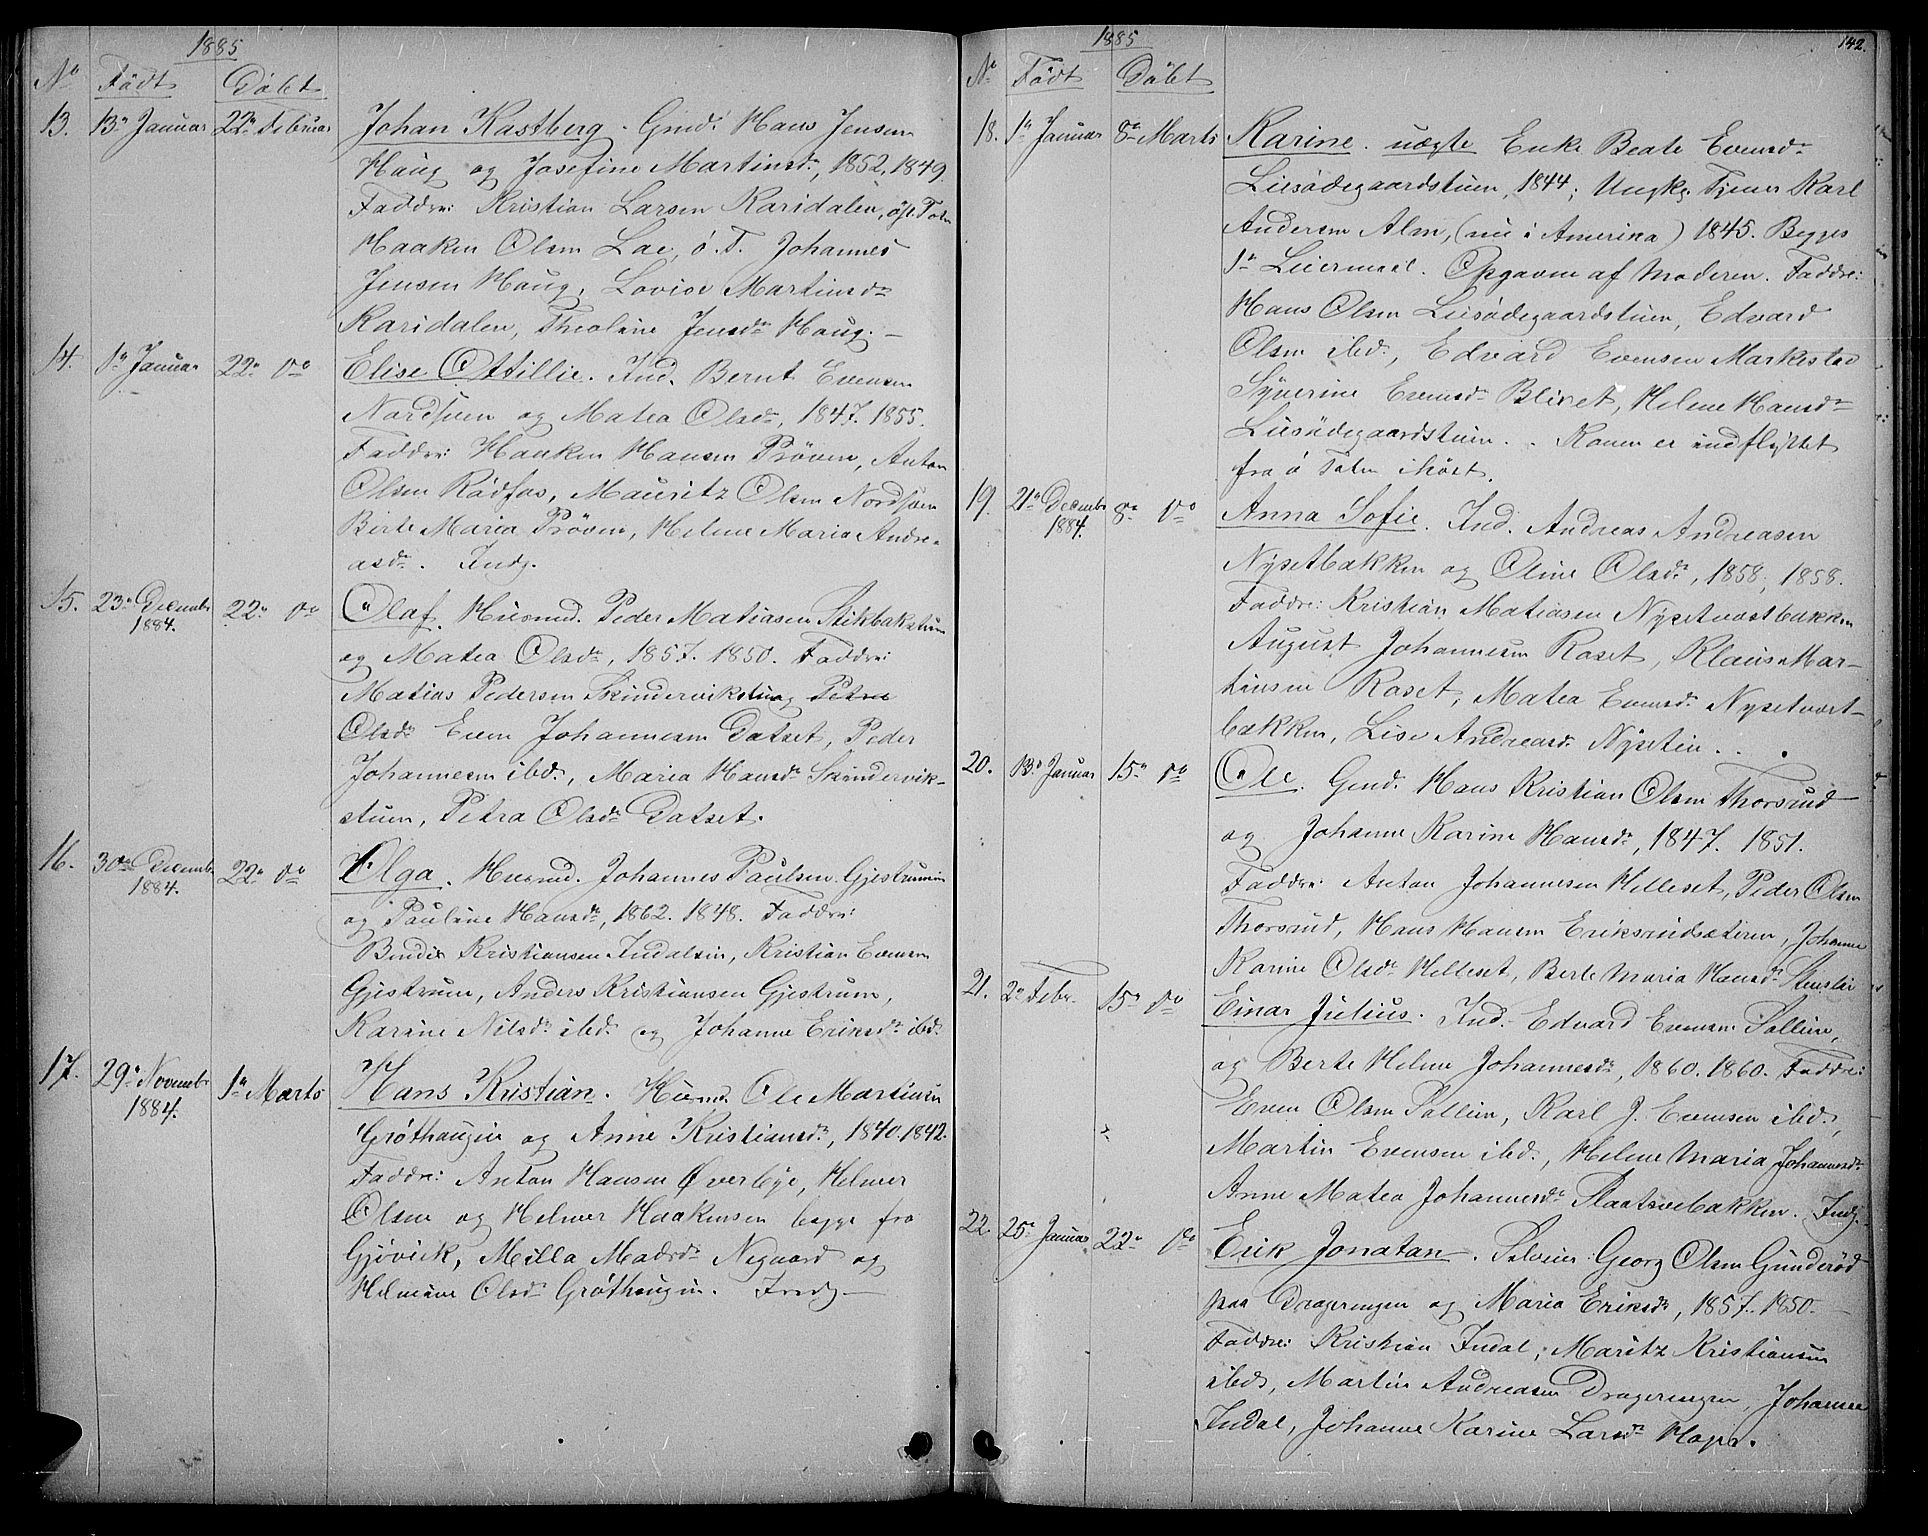 1885
No Födt Döbt
13. 13de Januar 22de Februar Johan Kastberg. Gmd. Hans Jensen
Haug og Josefine Martinsdr, 1852, 1849.
Faddre: Kristian Larsen Karidalen, öst. Toten
Haaken Olsen Lae, ö. T. Johannes
Jensen Haug, Lovise Martinsdr
Karidalen, Theoline Jensdr Haug. —
14. 1de Januar 22de do Elise Ottillie. Ind. Bernt Evensen
og Matea Olsdr, 1847. 1855.
Faddre: Haaken Hansen Pröven, Anton
Olsen Rödfos, Mauritz Olsen
Berte Maria Pröven, Helene Maria Andre-
asdr. Indg.
15. 23de Decembr 1884. 22de do Olaf. Husmd. Peder Matiasen Stikbakstuen
og Matea Olsdr, 1857. 1850. Faddre:
Matias Pedersen Skindervikstuen, Petra
Olsdr Even Johannesen Datset, Peder
Johannesen ibd., Maria Hansdr Skindervik-
stuen, Petra Olsdr Datset.
16. 30de Decembr 1884. 22de do Olga. Husmd. Johannes Paulsen Gjestrumein
og Pauline Hansdr, 1862. 1848. Faddre:
Kristiansen Indalsein, Kristian Evensen
Gjestrum, Anders Kristiansen Gjestrum,
Karine Nilsdr ibd. og Johanne Eriksdr ibd.
17. 29de Novembr 1884. 1de Marts Hans Kristian. Husmd. Ole Martinsen
Gröthaugen og Anne Kristiansdr, 1840. 1842.
Faddre: Anton Hansen Øverbye, Helmer
Olsen og Helmer Haakensen begge fra
Gjövick, Milla Madsdr Negaard og
Helmine Olsdr Gröthaugen. Indg. —
1885 142.
No Födt Döbt
18. 1de Januar 8de Marts Karine. uægte Enke Beate Evensdr
Liesödegaardstuen, 1844; Ungk. Tjener Karl
Andersen Alm, (nu i Amerika) 1845. Begges
1de Leiermaal. Opgaven af Moderen. Faddre:
Hans Olsen Liesödegaardstuen, Edvard
Olsen ibd., Edvard Evensen Markestad
Syverine Evensdr Blivet, Helene Hansdr
Liesödegaardstuen. Konen er indflyttet
fra ö Toten i höst.
19. 21de Decembr 1884. 8de do Anna Sofie. Ind. Andreas Andreasen
Nysetbakken og Oline Olsdr, 1858, 1858.
Faddre: Kristian Matiasen Nysetvostbakken
August Johannesen Roset, Klaus Mar-
tinsen Roset, Matea Evensdr Nysetvost-
bakken, Lise Andreasdr Nysetein.
20. 13de Januar 15de do Ole. Gmd. Hans Kristian Olsen Thorsrud
og Johanne Karine Hansdr, 1847. 1851.
Faddre: Anton Johannesen Helleset, Peder Olsen
Thorsrud, Hans Hansen Eriksrudsæteren, Johanne
Karine Olsdr Helleset, Berte Maria Hansdr Stenslie
21. 2de Febr. 15de do Einar Julius. Ind. Edvard Evensen Sollien,
og Berte Helene Johannesdr, 1860. 1860. Faddre:
Even Olsen Sollien, Karl J. Evensen ibd.,
Martin Evensen ibd., Helene Maria Johannesdr
Anne Matea Johannesdr Slaatsvebakken. Indg. —
22. 25de Januar 22de do Erik Jonatan. Selveier Georg Olsen Gunderöd
paa Drageringen og Maria Eriksdr, 1857. 1850. —
Faddre: Kristian Indal, Maritz Kristiansen
ibd., Martin Andreasen Drageringen, Johanne
Indal, Johanne Karine Larsdr Hope.